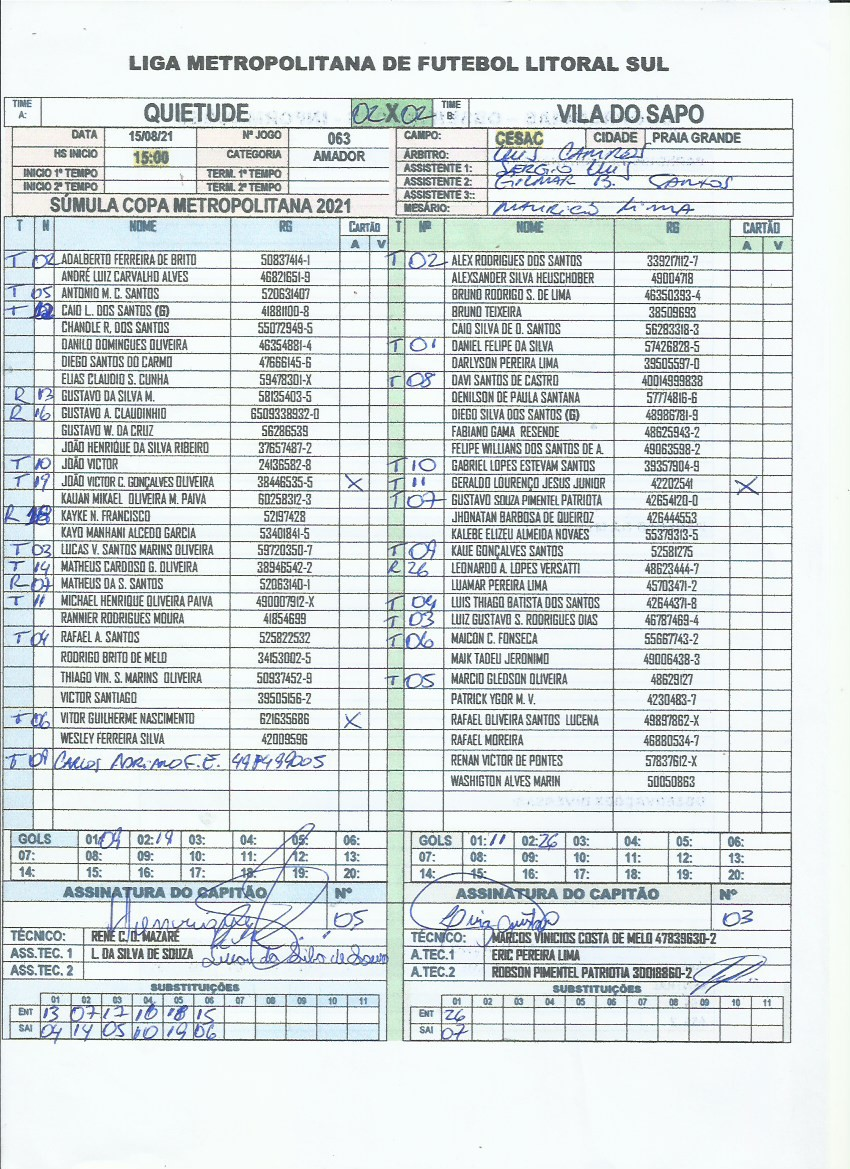 LIGA METROPOLITANA DE FUTEBOL LITORAL SUL
TIME A: QUIETUDE 02 X 02 TIME B: VILA DO SAPO
DATA 15/08/21 Nº JOGO 063 CAMPO: CESAC CIDADE PRAIA GRANDE
HS INICIO 15:00 CATEGORIA AMADOR ÁRBITRO: LUIS CAMPOS
INICIO 1º TEMPO TERM. 1º TEMPO ASSISTENTE 1: SERGIO LUIS
INICIO 2º TEMPO TERM. 2º TEMPO ASSISTENTE 2: GILMAR B. SANTOS
ASSISTENTE 3::
SÚMULA COPA METROPOLITANA 2021 MESÁRIO: MAURICIO LIMA
T N NOME RG CARTÃO T Nº NOME RG CARTÃO
A V A V
T 02 ADALBERTO FERREIRA DE BRITO 50837414-1 T 02 ALEX RODRIGUES DOS SANTOS 339217112-7
ANDRÉ LUIZ CARVALHO ALVES 46821651-9 ALEXSANDER SILVA HEUSCHOBER 49004718
T 05 ANTONIO M. C. SANTOS 520631407 BRUNO RODRIGO S. DE LIMA 46350393-4
T 12 CAIO L. DOS SANTOS (G) 41881100-8 BRUNO TEIXEIRA 38509693
CHANDLE R. DOS SANTOS 55072949-5 CAIO SILVA DE O. SANTOS 56283318-3
DANILO DOMINGUES OLIVEIRA 46354881-4 T 01 DANIEL FELIPE DA SILVA 57426828-5
DIEGO SANTOS DO CARMO 47666145-6 DARLYSON PEREIRA LIMA 39505597-0
ELIAS CLAUDIO S. CUNHA 59478301-X T 08 DAVI SANTOS DE CASTRO 40014999838
R 13 GUSTAVO DA SILVA M. 58135403-5 DENILSON DE PAULA SANTANA 57774816-6
R 16 GUSTAVO A. CLAUDINHIO 6509338932-0 DIEGO SILVA DOS SANTOS (G) 48986781-9
GUSTAVO W. DA CRUZ 56286539 FABIANO GAMA RESENDE 48625943-2
JOÃO HENRIQUE DA SILVA RIBEIRO 37657487-2 FELIPE WILLIANS DOS SANTOS DE A. 49063598-2
T 10 JOÃO VICTOR 24136582-8 T 10 GABRIEL LOPES ESTEVAM SANTOS 39357904-9
T 19 JOÃO VICTOR C. GONÇALVES OLIVEIRA 38446535-5 X T 11 GERALDO LOURENÇO JESUS JUNIOR 42202541 X
KAUAN MIKAEL OLIVEIRA M. PAIVA 60258312-3 T 07 GUSTAVO SOUZA PIMENTEL PATRIOTA 42654120-0
R 18 KAYKE N. FRANCISCO 52197428 JHONATAN BARBOSA DE QUEIROZ 426444553
KAYO MANHANI ALCEDO GARCIA 53401841-5 KALEBE ELIZEU ALMEIDA NOVAES 55379313-5
T 03 LUCAS V. SANTOS MARINS OLIVEIRA 59720350-7 T 09 KAUE GONÇALVES SANTOS 52581275
T 14 MATHEUS CARDOSO G. OLIVEIRA 38946542-2 R 26 LEONARDO A. LOPES VERSATTI 48623444-7
R 07 MATHEUS DA S. SANTOS 52063140-1 LUAMAR PEREIRA LIMA 45703471-2
T 11 MICHAEL HENRIQUE OLIVEIRA PAIVA 490007912-X T 04 LUIS THIAGO BATISTA DOS SANTOS 42644371-8
RANNIER RODRIGUES MOURA 41854699 T 03 LUIZ GUSTAVO S. RODRIGUES DIAS 46787469-4
T 04 RAFAEL A. SANTOS 525822532 T 06 MAICON C. FONSECA 55667743-2
RODRIGO BRITO DE MELO 34153002-5 MAIK TADEU JERONIMO 49006438-3
THIAGO VIN. S. MARINS OLIVEIRA 50937452-9 T 05 MARCIO GLEDSON OLIVEIRA 48629127
VICTOR SANTIAGO 39505156-2 PATRICK YGOR M. V. 4230483-7
T 06 VITOR GUILHERME NASCIMENTO 621635686 X RAFAEL OLIVEIRA SANTOS LUCENA 49897862-X
WESLEY FERREIRA SILVA 42009596 RAFAEL MOREIRA 46880534-7
T 09 CARLOS ADRIANO F.E. 498499005 RENAN VICTOR DE PONTES 57837612-X
WASHIGTON ALVES MARIN 50050863
GOLS 01: 09 02: 19 03: 04: 05: 06: GOLS 01: 11 02: 26 03: 04: 05: 06:
07: 08: 09: 10: 11: 12: 13: 07: 08: 09: 10: 11: 12: 13:
14: 15: 16: 17: 18: 19: 20: 14: 15: 16: 17: 18: 19: 20:
ASSINATURA DO CAPITÃO Nº ASSINATURA DO CAPITÃO Nº
05 03
TÉCNICO: RENÊ C. O. MAZARÉ TÉCNICO: MARCOS VINICIOS COSTA DE MELO 47839630-2
ASS.TEC. 1 L. DA SILVA DE SOUZA A.TEC.1 ERIC PEREIRA LIMA
ASS.TEC. 2 A.TEC.2 ROBSON PIMENTEL PATRIOTIA 30018860-2
SUBSTITUIÇÕES SUBSTITUIÇÕES
01 02 03 04 05 06 07 08 09 10 11 01 02 03 04 05 06 07 08 09 10 11
ENT 13 07 17 16 18 15 ENT 26
SAI 04 14 05 10 19 06 SAI 07